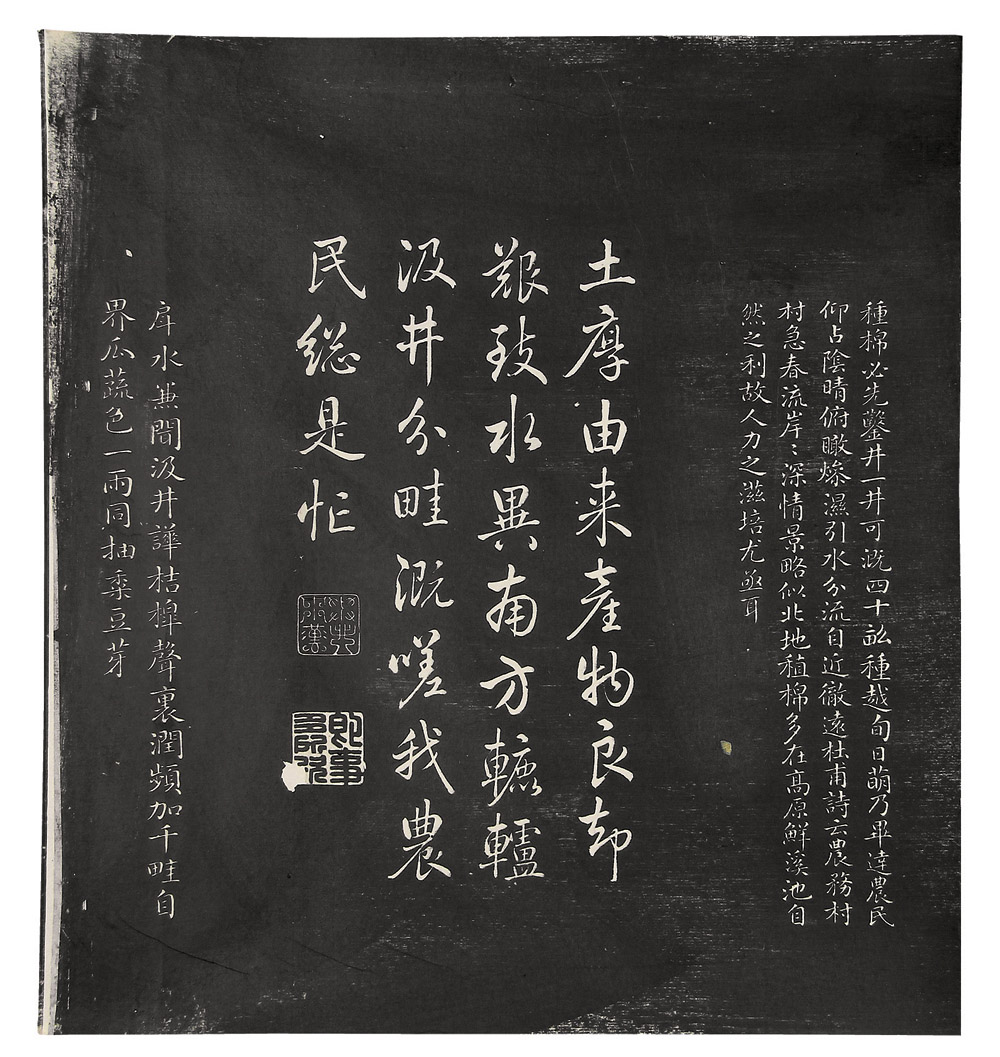 種棉必先鑿井一井可溉四十畝種越旬日萌乃畢達農民
仰占陰晴俯瞰燥濕引水分流自近徹遠杜甫詩云農務村
村急春流岸〻深情景略似北地植棉多在高原鮮溪池自
然之利故人力之滋培尤亟耳
土厚由来產物良却
艱致水異南方轆轤
汲井分畦溉嗟我農
民総是忙
即事多所欣
戽水兼聞汲井譁桔槹聲裏潤頻加千畦自
界瓜蔬色一雨同抽黍豆芽